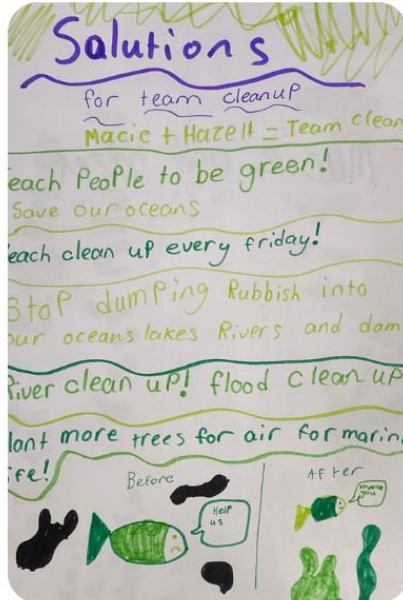 Solutions
for team cleanup
Macie + Hazell = Team clean
each PeoPle to be green!
Save our oceans
each clean up every friday!
Stop dumping Rubbish into
our oceans lakes Rivers and dam
River clean up! flood clean up
lant more trees for air for marin
ife!
Before
After
Help
us
you